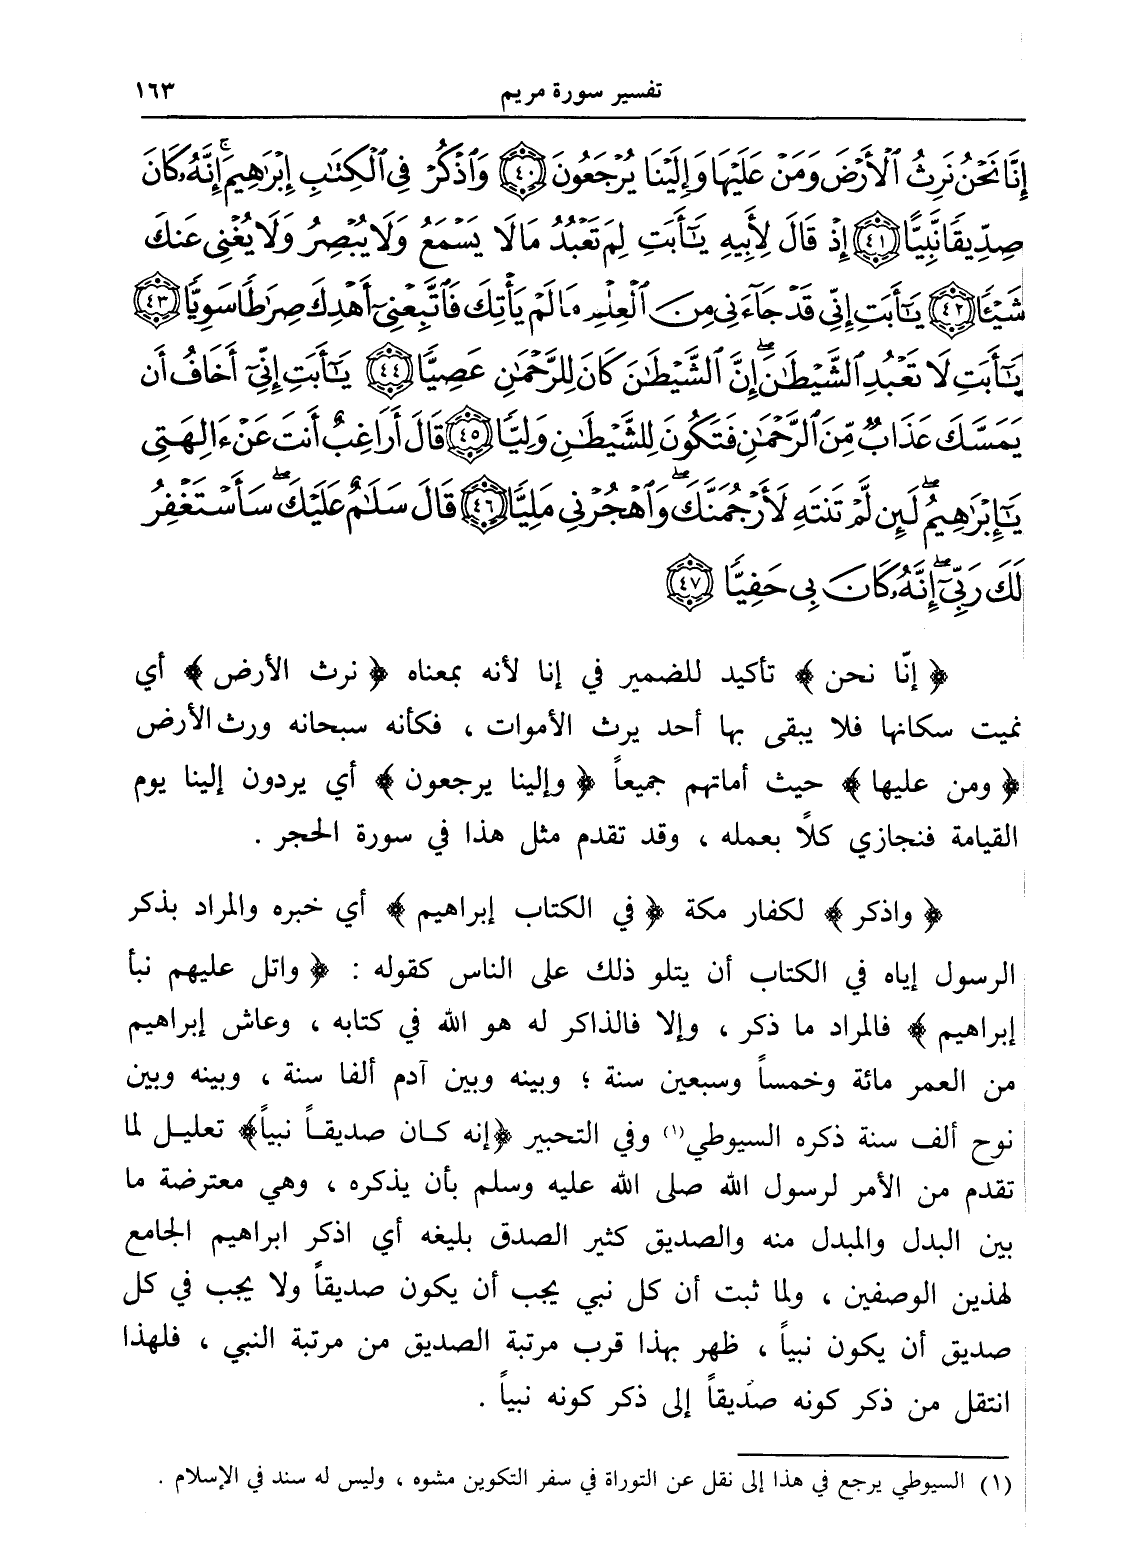 تفسير سورة مريم ١٦٣
إِنَّا نَحْنُ نَرِثُ ٱلْأَرْضَ وَمَنْ عَلَيْهَا وَإِلَيْنَا يُرْجَعُونَ ﴿٤٠﴾ وَٱذْكُرْ فِى ٱلْكِتَٰبِ إِبْرَٰهِيمَ ۚ إِنَّهُۥ كَانَ
صِدِّيقًا نَّبِيًّا ﴿٤١﴾ إِذْ قَالَ لِأَبِيهِ يَٰٓأَبَتِ لِمَ تَعْبُدُ مَا لَا يَسْمَعُ وَلَا يُبْصِرُ وَلَا يُغْنِى عَنكَ
شَيْـًٔا ﴿٤٢﴾ يَٰٓأَبَتِ إِنِّى قَدْ جَآءَنِى مِنَ ٱلْعِلْمِ مَا لَمْ يَأْتِكَ فَٱتَّبِعْنِىٓ أَهْدِكَ صِرَٰطًا سَوِيًّا ﴿٤٣﴾
يَٰٓأَبَتِ لَا تَعْبُدِ ٱلشَّيْطَٰنَ ۖ إِنَّ ٱلشَّيْطَٰنَ كَانَ لِلرَّحْمَٰنِ عَصِيًّا ﴿٤٤﴾ يَٰٓأَبَتِ إِنِّىٓ أَخَافُ أَن
يَمَسَّكَ عَذَابٌ مِّنَ ٱلرَّحْمَٰنِ فَتَكُونَ لِلشَّيْطَٰنِ وَلِيًّا ﴿٤٥﴾ قَالَ أَرَاغِبٌ أَنتَ عَنْ ءَالِهَتِى
يَٰٓإِبْرَٰهِيمُ ۖ لَئِن لَّمْ تَنتَهِ لَأَرْجُمَنَّكَ ۖ وَٱهْجُرْنِى مَلِيًّا ﴿٤٦﴾ قَالَ سَلَٰمٌ عَلَيْكَ ۖ سَأَسْتَغْفِرُ
لَكَ رَبِّىٓ ۖ إِنَّهُۥ كَانَ بِى حَفِيًّا ﴿٤٧﴾
﴿ إنّا نحن ﴾ تأكيد للضمير في إنا لأنه بمعناه ﴿ نرث الأرض ﴾ أي
نميت سكانها فلا يبقى بها أحد يرث الأموات ، فكأنه سبحانه ورث الأرض
﴿ ومن عليها ﴾ حيث أماتهم جميعاً ﴿ وإلينا يرجعون ﴾ أي يردون إلينا يوم
القيامة فنجازي كلاً بعمله ، وقد تقدم مثل هذا في سورة الحجر .
﴿ واذكر ﴾ لكفار مكة ﴿ في الكتاب إبراهيم ﴾ أي خبره والمراد بذكر
الرسول إياه في الكتاب أن يتلو ذلك على الناس كقوله : ﴿ واتل عليهم نبأ
إبراهيم ﴾ فالمراد ما ذكر ، وإلا فالذاكر له هو الله في كتابه ، وعاش إبراهيم
من العمر مائة وخمساً وسبعين سنة ؛ وبينه وبين آدم ألفا سنة ، وبينه وبين
نوح ألف سنة ذكره السيوطي(١) وفي التحبير ﴿إنه كان صديقاً نبياً﴾ تعليل لما
تقدم من الأمر لرسول الله صلى الله عليه وسلم بأن يذكره ، وهي معترضة ما
بين البدل والمبدل منه والصديق كثير الصدق بليغه أي اذكر ابراهيم الجامع
لهذين الوصفين ، ولما ثبت أن كل نبي يجب أن يكون صديقاً ولا يجب في كل
صديق أن يكون نبياً ، ظهر بهذا قرب مرتبة الصديق من مرتبة النبي ، فلهذا
انتقل من ذكر كونه صدّيقاً إلى ذكر كونه نبياً .
(١) السيوطي يرجع في هذا إلى نقل عن التوراة في سفر التكوين مشوه ، وليس له سند في الإسلام .